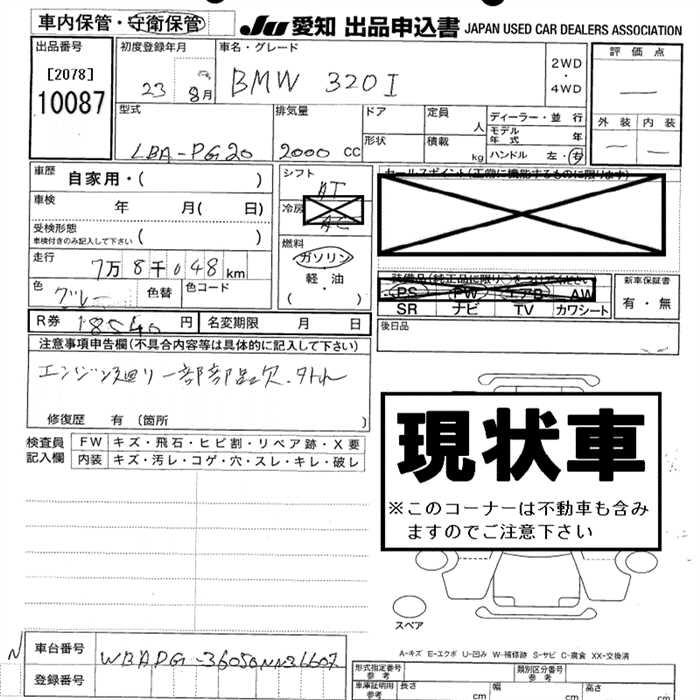 車内保管・守衛保管
JU 愛知 出品申込書 JAPAN USED CAR DEALERS ASSOCIATION
出品番号
[2078]
10087
初度登録年月
23 8月
車名・グレード
BMW 320I
2WD
・
4WD
評価点
外装 内装
型式
LBA-PG20
排気量
2000 CC
ドア
形状
定員 人
積載 kg
ディーラー・並行
モデル年式 年
ハンドル 左・右
車歴 自家用・( )
車検 年 月( 日)
受検形態
車検付きのみ記入して下さい ( )
走行 7万8千048km
色 グレー 色替 色コード
シフト
AT
冷房
AC
燃料
ガソリン
軽・油
( )
セールスポイント(正常に機能するものに限ります)
装備品(純正品に限り、○をつけてください)
PS PW エアB AW
SR ナビ TV カワシート
新車保証書
有・無
R券 18540円 名変期限 月 日
後日品
注意事項申告欄(不具合内容等は具体的に記入して下さい)
エンジン廻り一部部品欠、外れ
修復歴 有 (箇所 )
検査員記入欄
FW キズ・飛石・ヒビ割・リペア跡・X要
内装 キズ・汚レ・コゲ・穴・スレ・キレ・破レ
現状車
※このコーナーは不動車も含み
ますのでご注意下さい
スペア
A-キズ E-エクボ U-凹み W-補修跡 S-サビ C-腐食 XX-交換済
N
車台番号
登録番号
形式指定番号
参考
類別区分番号
参考
車庫証明用
参考
長さ cm
幅
高さ cm